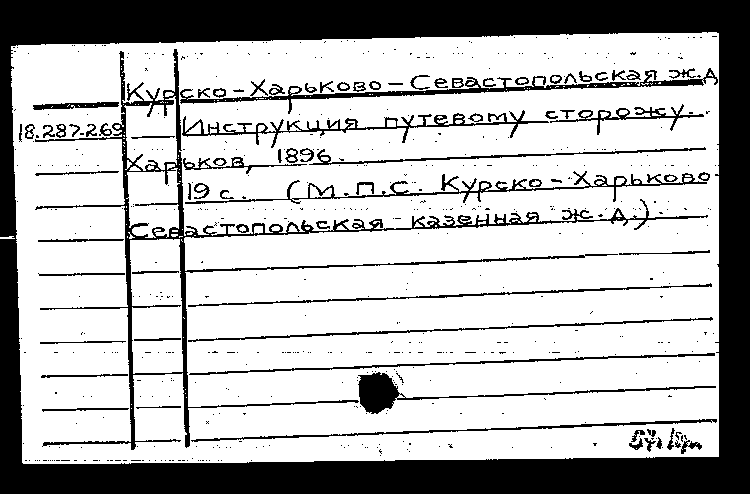 Курско-Харьково-Севастопольская ж.д
18.287.269 Инструкция путевому сторожу.
Харьков, 1896.
19 с. (М.П.С. Курско-Харьково-
Севастопольская казенная ж.д.).